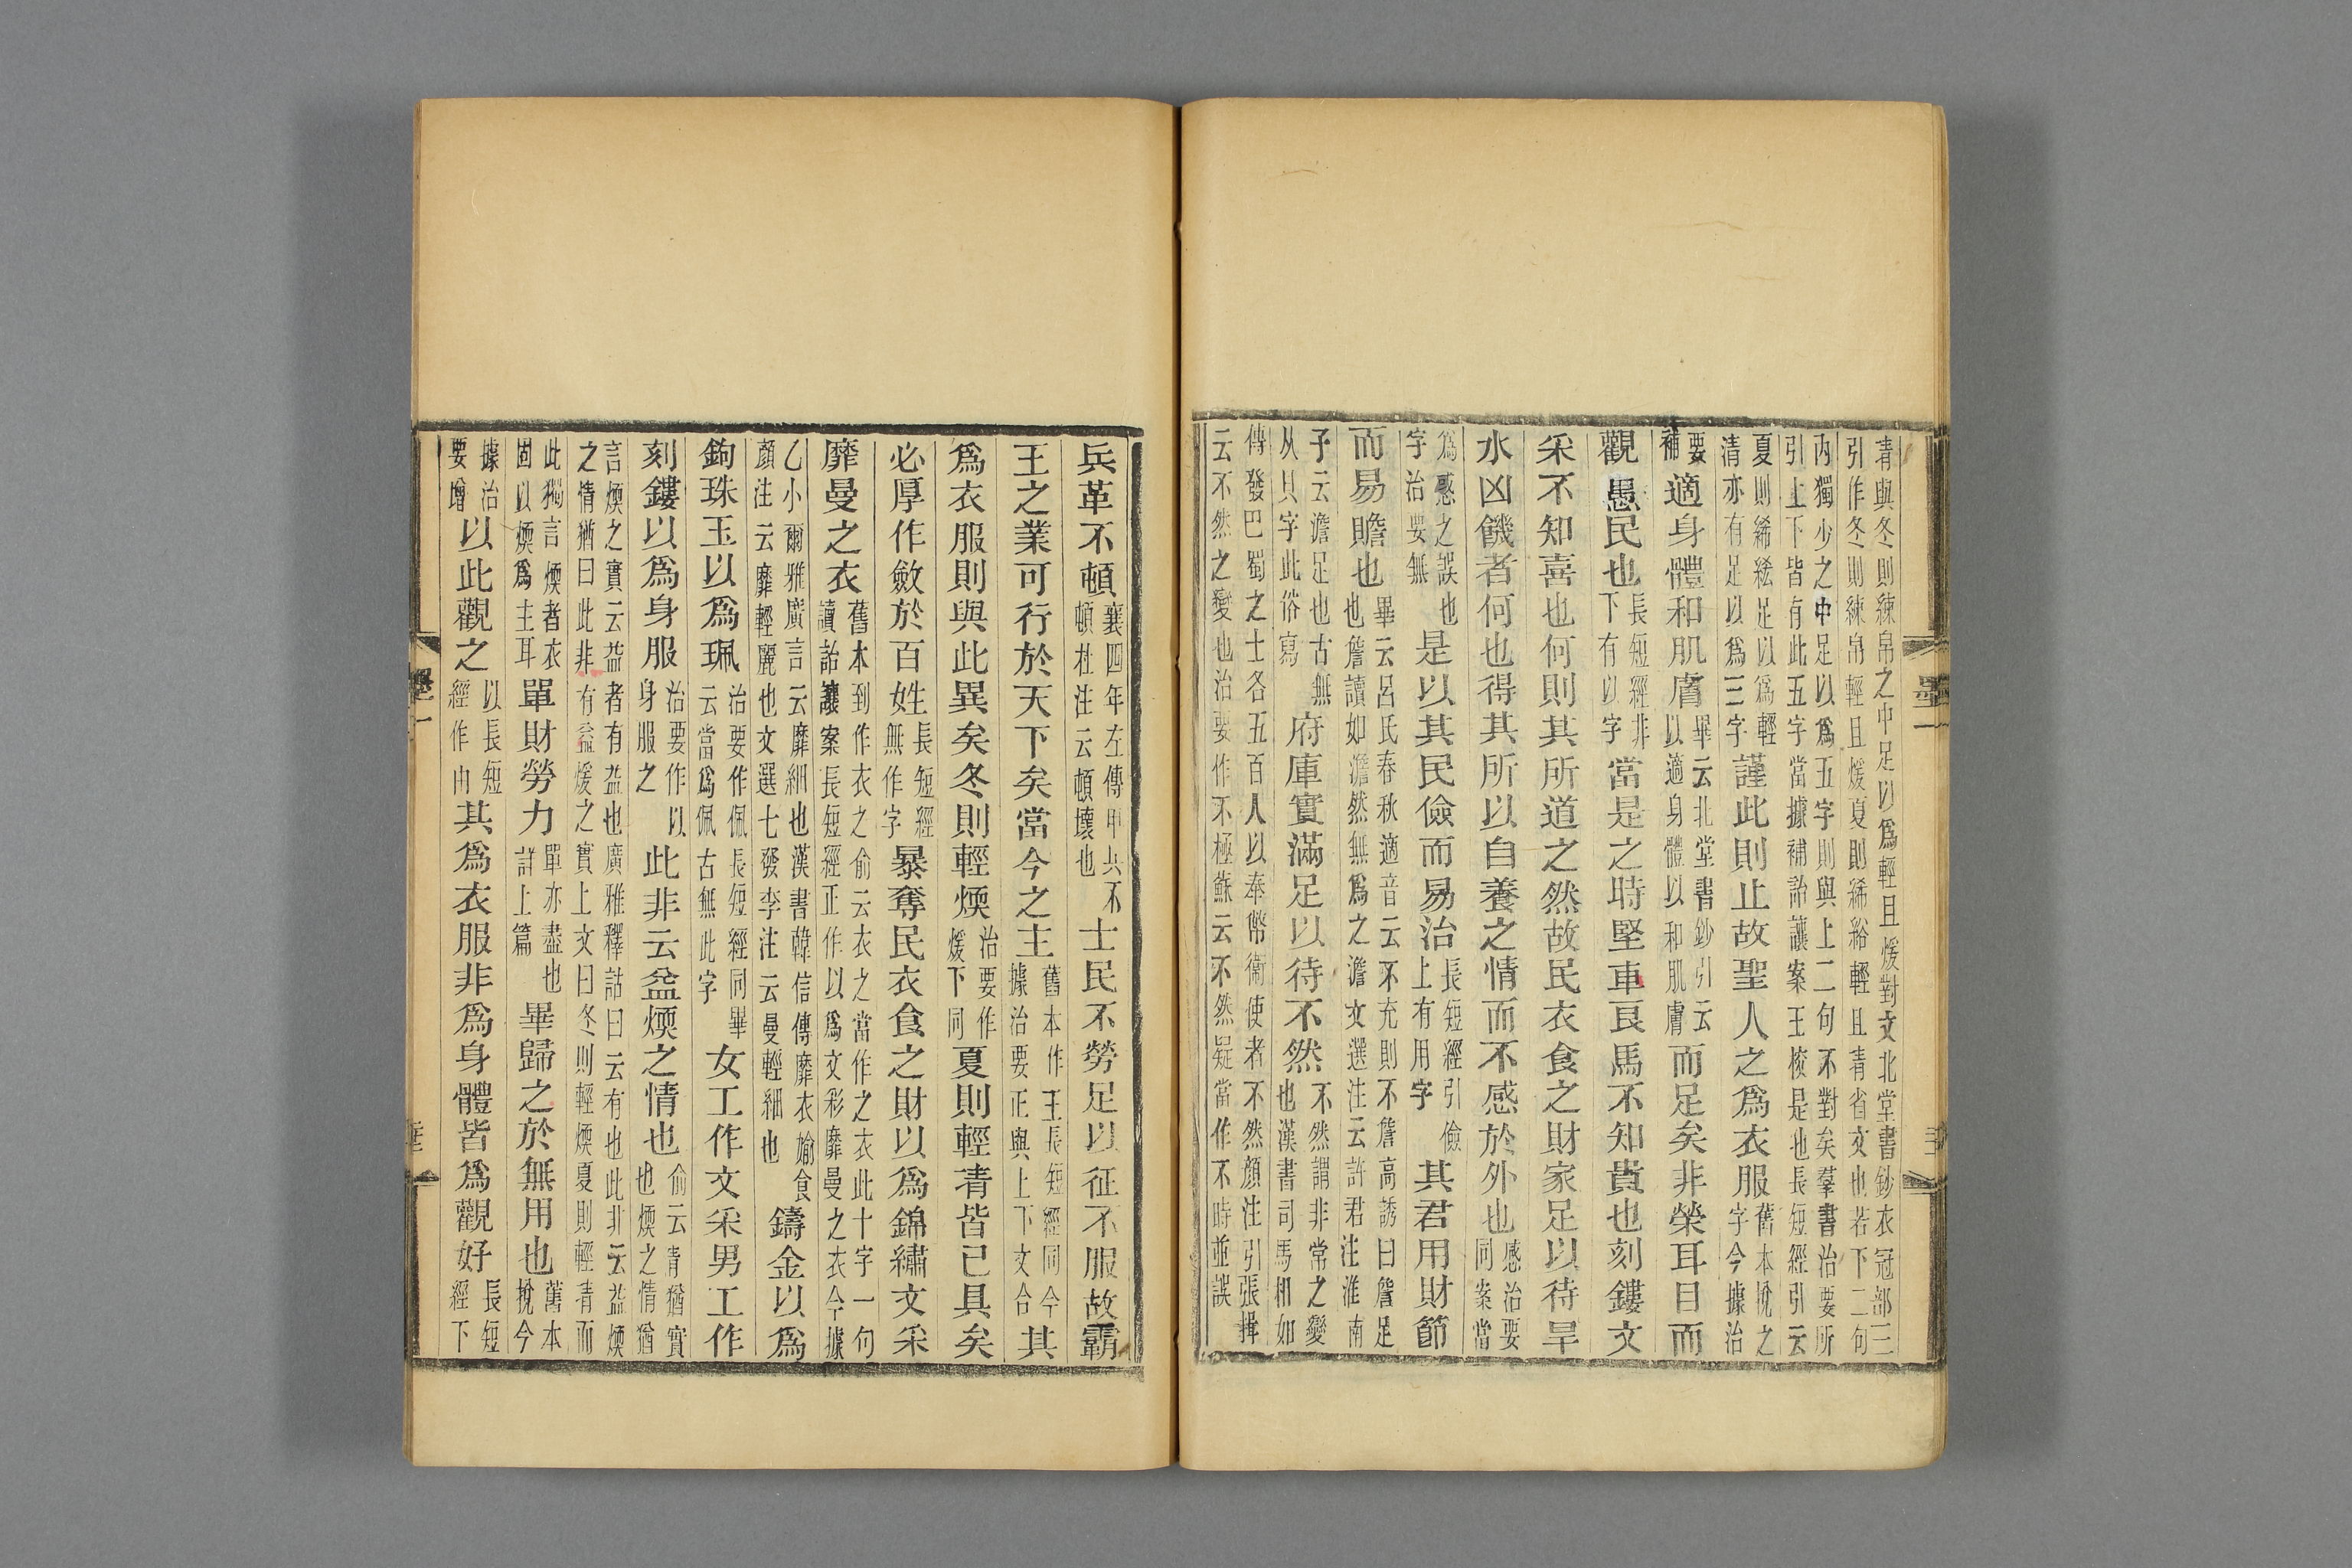 凊與冬則練帛之中足以爲輕且煖對文北堂書鈔衣冠部三
引作冬則練帛輕且煖夏則絺綌輕且凊省文也若下二句
內獨少之中足以爲五字則與上二句不對矣羣書治要所
引上下皆有此五字當據補詒讓案王校是也長短經引云
夏則絺綌足以爲輕清亦有足以爲三字謹此則止故聖人之爲衣服舊本挩之字今據治
要補適身體和肌膚畢云北堂書鈔引云以適身體以和肌膚而足矣非榮耳目而
觀愚民也長短經非下有以字當是之時堅車良馬不知貴也刻鏤文
采不知喜也何則其所道之然故民衣食之財家足以待旱
水凶饑者何也得其所以自養之情而不感於外也感治要同案當
爲惑之誤也字治要無是以其民儉而易治長短經引儉上有用字其君用財節
而易贍也畢云呂氏春秋適音云不充則不詹高誘曰詹足也詹讀如澹然無爲之澹文選注云許君注淮南
子云澹足也古無从貝字此俗寫府庫實滿足以待不然不然謂非常之變也漢書司馬相如
傳發巴蜀之士各五百人以奉幣衞使者不然顏注引張揖
云不然之變也治要作不極蘇云不然疑當作不時並誤
墨一
兵革不頓襄四年左傳甲兵不頓杜注云頓壞也士民不勞足以征不服故霸
王之業可行於天下矣當今之主舊本作王長短經同今據治要正與上下文合其
爲衣服則與此異矣冬則輕煗治要作煖下同夏則輕凊皆已具矣
必厚作斂於百姓長短經無作字暴奪民衣食之財以爲錦繡文采
靡曼之衣舊本到作衣之俞云衣之當作之衣此十字一句讀詒讓案長短經正作以爲文彩靡曼之衣今據
乙小爾雅廣言云靡細也漢書韓信傳靡衣媮食顏注云靡輕麗也文選七發李注云曼輕細也鑄金以爲
鉤珠玉以爲珮治要作佩長短經同畢云當爲佩古無此字女工作文采男工作
刻鏤以爲身服治要作以身服之此非云益煗之情也俞云凊猶實也煗之情猶
言煗之實云益者有益也廣雅釋詁曰云有也此非云益煗
之情猶曰此非有益煖之實上文曰冬則輕煗夏則輕凊而
此獨言煗者衣固以煗爲主耳單財勞力單亦盡也詳上篇畢歸之於無用也舊本挩今
據治要增以此觀之以長短經作由其爲衣服非爲身體皆爲觀好長短經下